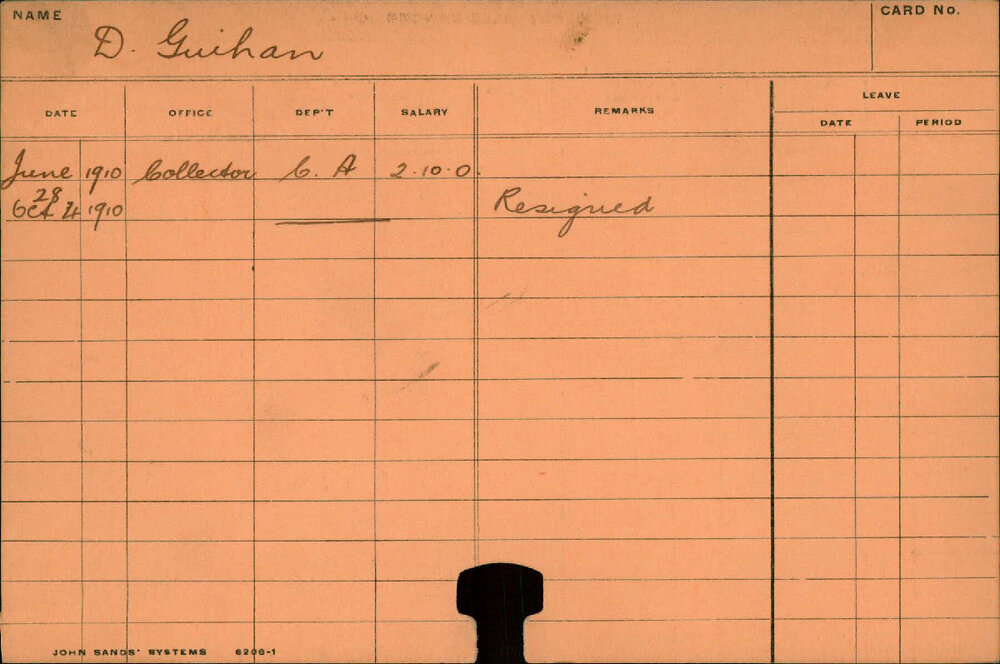 NAME
D. Guihan
CARD No.
DATE OFFICE DEP'T SALARY REMARKS LEAVE
DATE PERIOD
June 28 1910 Collector C. A 2.10.0.
Oct 4 1910 Resigned
JOHN SANDS' SYSTEMS 6206-1